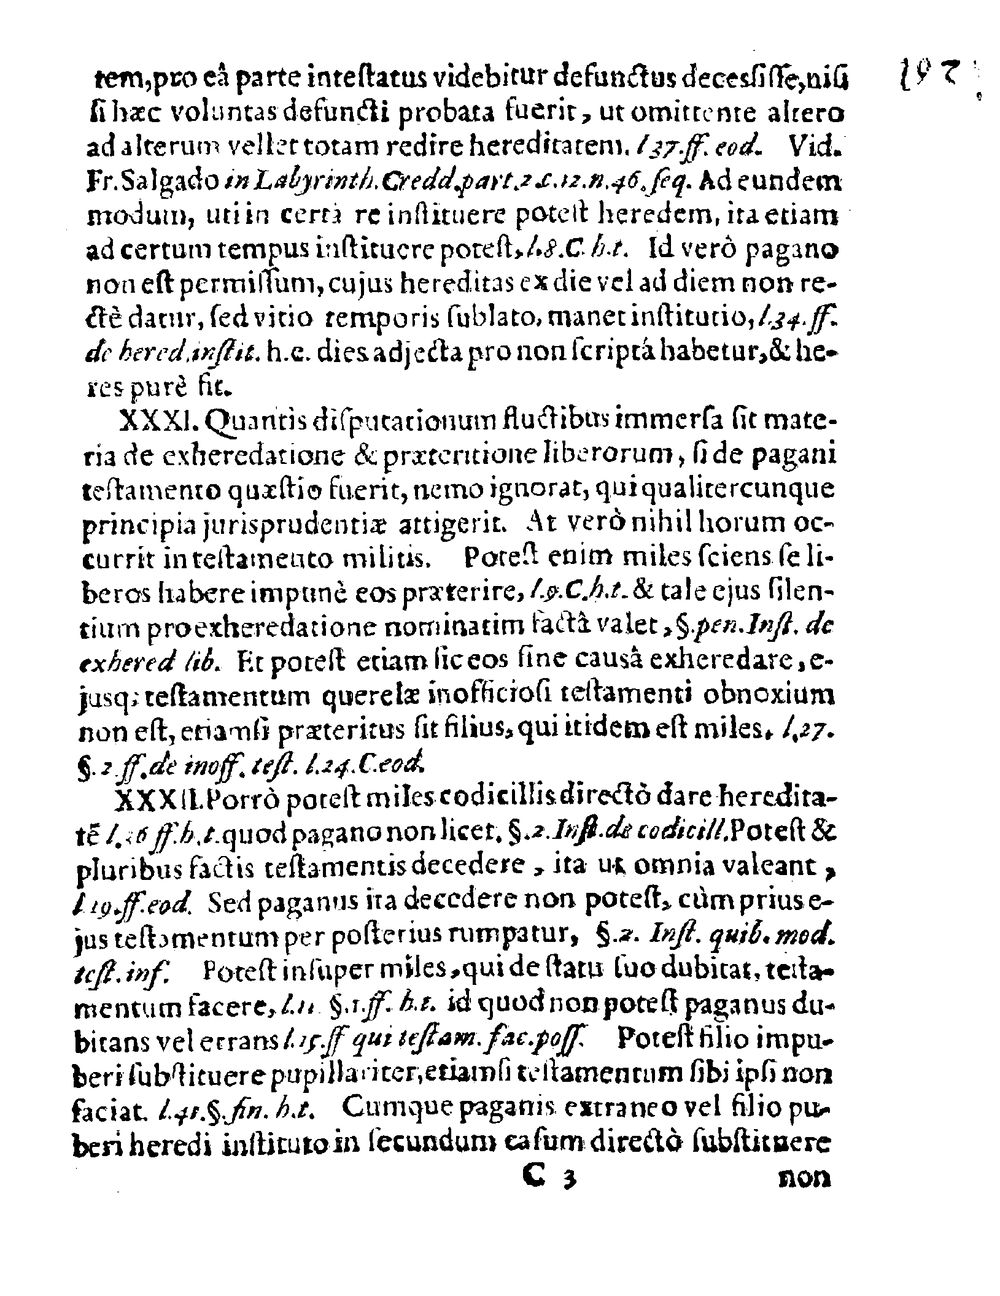 tem, pro eâ parte inteſtatus videbitur defunctus deceſſiſſe, niſi
ſi hæc voluntas defuncti probata fuerit, ut omittente altero
ad alterum vellet totam redire hereditatem. l 37. ff. eod. Vid.
Fr. Salgado in Labyrinth. Credd. part. 2. c. 12. n. 46. ſeq. Ad eundem
modum, uti in certâ re inſtituere poteſt heredem, ita etiam
ad certum tempus inſtituere poteſt, l. 8. C. h. t. Id verò pagano
non eſt permiſſum, cujus hereditas ex die vel ad diem non re-
ctè datur, ſed vitio temporis ſublato, manet inſtitutio, l. 34. ff.
de hered. inſtit. h. e. dies adjecta pro non ſcriptâ habetur, & he-
res purè fit.
XXXI. Quantis diſputationum fluctibus immerſa ſit mate-
ria de exheredatione & præteritione liberorum, ſi de pagani
teſtamento quæſtio fuerit, nemo ignorat, qui qualitercunque
principia jurisprudentiæ attigerit. At verò nihil horum oc-
currit in teſtamento militis. Poteſt enim miles ſciens ſe li-
beros habere impunè eos præterire, l. 9. C. h. t. & tale ejus ſilen-
tium pro exheredatione nominatim factâ valet, §. pen. Inſt. de
exhered lib. Et poteſt etiam ſic eos ſine causâ exheredare, e-
jusq; teſtamentum querelæ inofficioſi teſtamenti obnoxium
non eſt, etiamſi præteritus ſit filius, qui itidem eſt miles, l. 27.
§. 2 ff. de inoff. teſt. l. 24. C. eod.
XXXII. Porrò poteſt miles codicillis directò dare heredita-
tē l. 36 ff. h. t. quod pagano non licet. §. 2. Inſt. de codicill. Poteſt &
pluribus factis teſtamentis decedere, ita ut omnia valeant,
l 19. ff. eod. Sed paganus ita decedere non poteſt, cùm prius e-
jus teſtamentum per poſterius rumpatur, §. 2. Inſt. quib. mod.
teſt. inf. Poteſt inſuper miles, qui de ſtatu ſuo dubitat, teſta-
mentum facere, l. 11 §. 1. ff. h. t. id quod non poteſt paganus du-
bitans vel errans l. 15. ff qui teſtam. fac. poſſ. Poteſt filio impu-
beri ſubſtituere pupillariter, etiamſi teſtamentum ſibi ipſi non
faciat. l. 41. §. fin. h. t. Cumque paganis extraneo vel filio pu-
beri heredi inſtituto in ſecundum caſum directò ſubſtituere
C 3 non